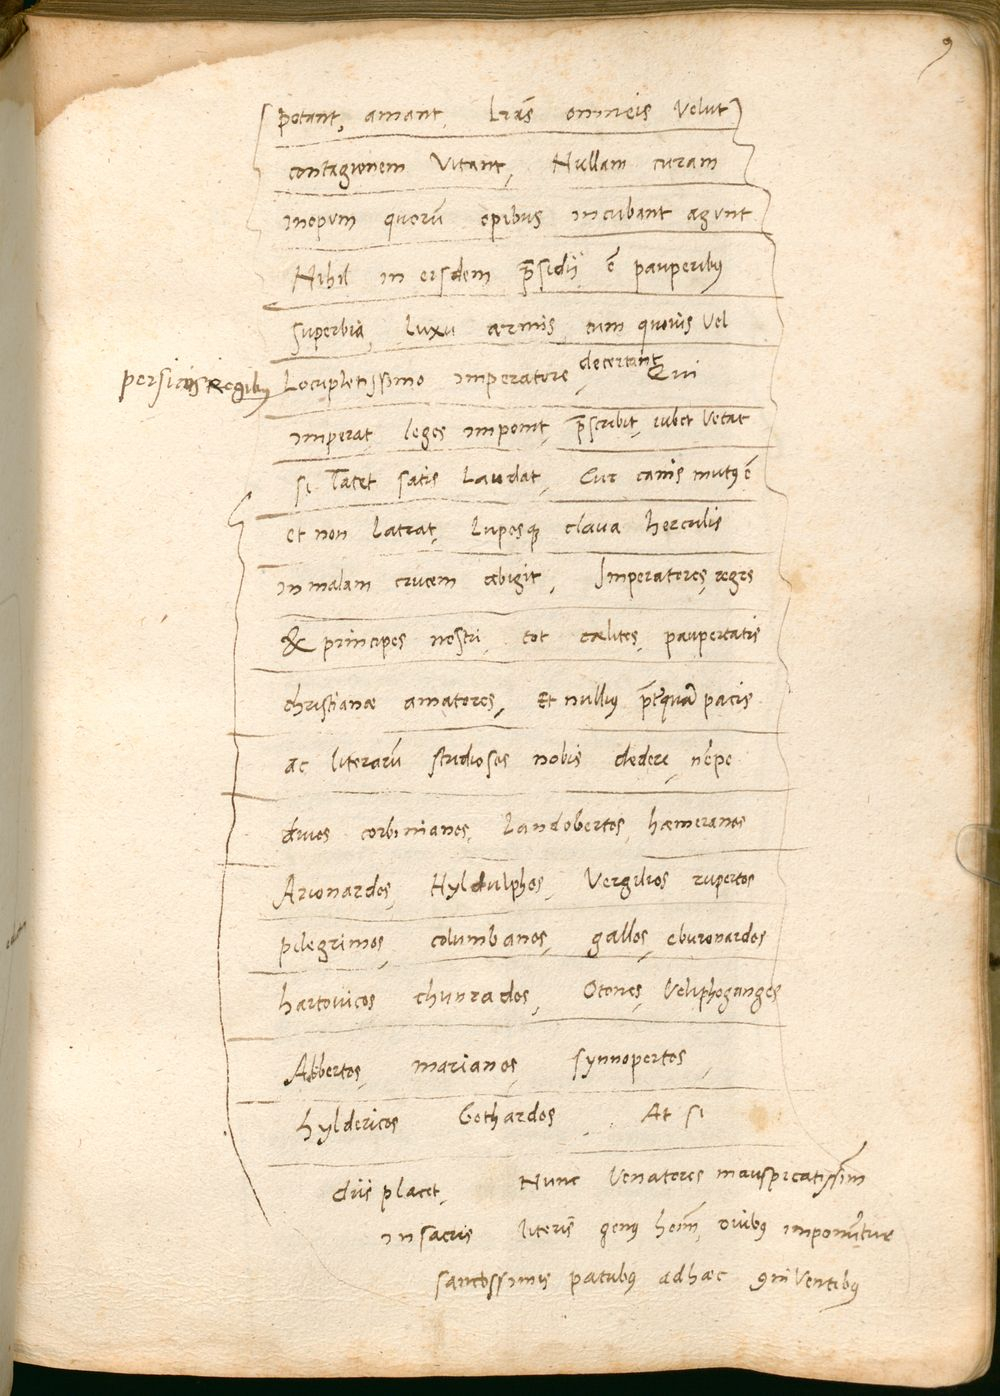 9
potant, amant, Lr̃as omneis velut
contagionem vitant, Nullam curam
inopum quorũ opibus incubant agunt
Nihil in eisdem p̃sidij ẽ pauperibꝰ
superbia, luxu armis, cum quovis vel
persicis Regibꝰ Locupletissimo imperatore, decertant Qui
imperat, leges imponit, p̃scribit, iubet vetat
si Tacet satis Laudat, Cur canis mutꝰ ẽ
et non Latrat, Luposqꝫ clava herculis
in malam crucem abigit, Imperatores, reges
& principes nostri, tot cælites, paupertatis
christianæ amatores, Et nulliꝰ p̃t̃quã pacis
ac literarũ studiosos nobis dedere, nẽpe
divos corbinianos, Landobertos, hæmeranos
Arionardos, Hyldulphos, Vergilios rupertos
pilegrimos, columbanos, gallos, eburonardos
hartovicos chunrados, Otones, Veliphogangos
Abbertos, marianos, synnopertos,
hyldericos Gothardos, At si
diis placet, Nunc Venatores inauspicatissim̃
in sacris literis genꝰ hoĩm, ovibꝰ imponũtur
sanctissimis patribꝰ ad hæc ꝯniventibꝰ